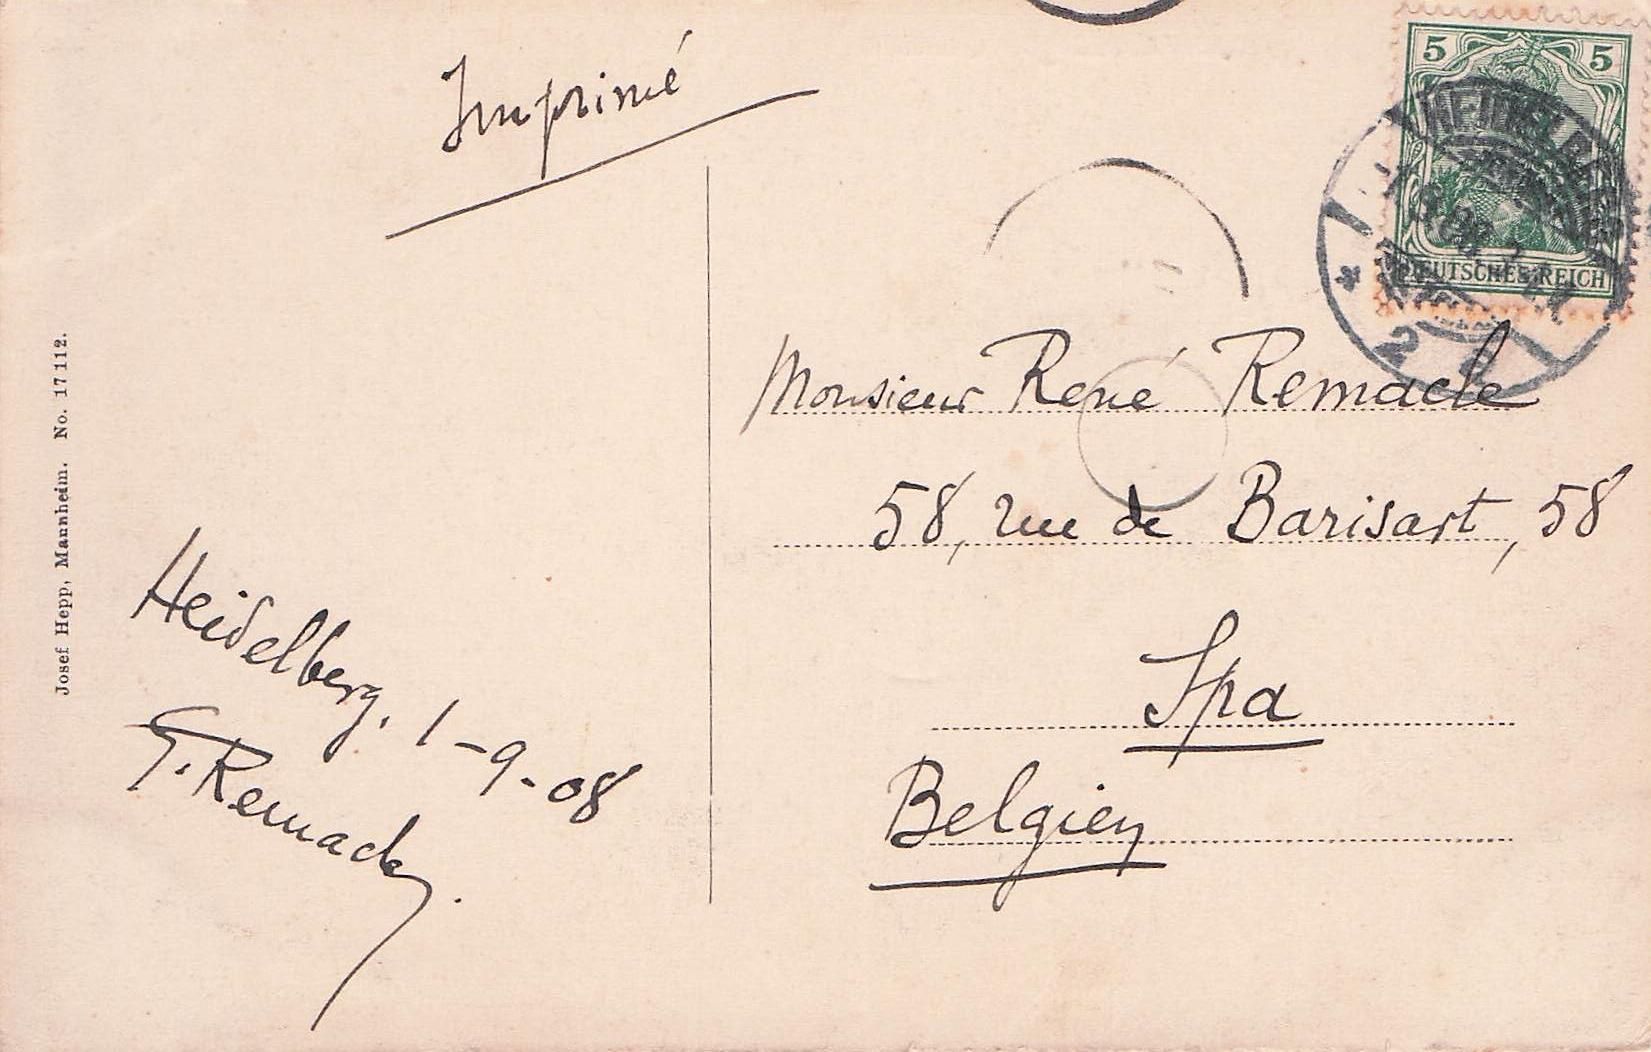 Imprimé
5 5
DEUTSCHES REICH
HEIDELBERG
2
Monsieur René Remacle
58, rue de Barisart, 58
Spa
Belgien
Heidelberg, 1-9-08
G. Remacle.
Josef Hepp, Mannheim. No. 17112.